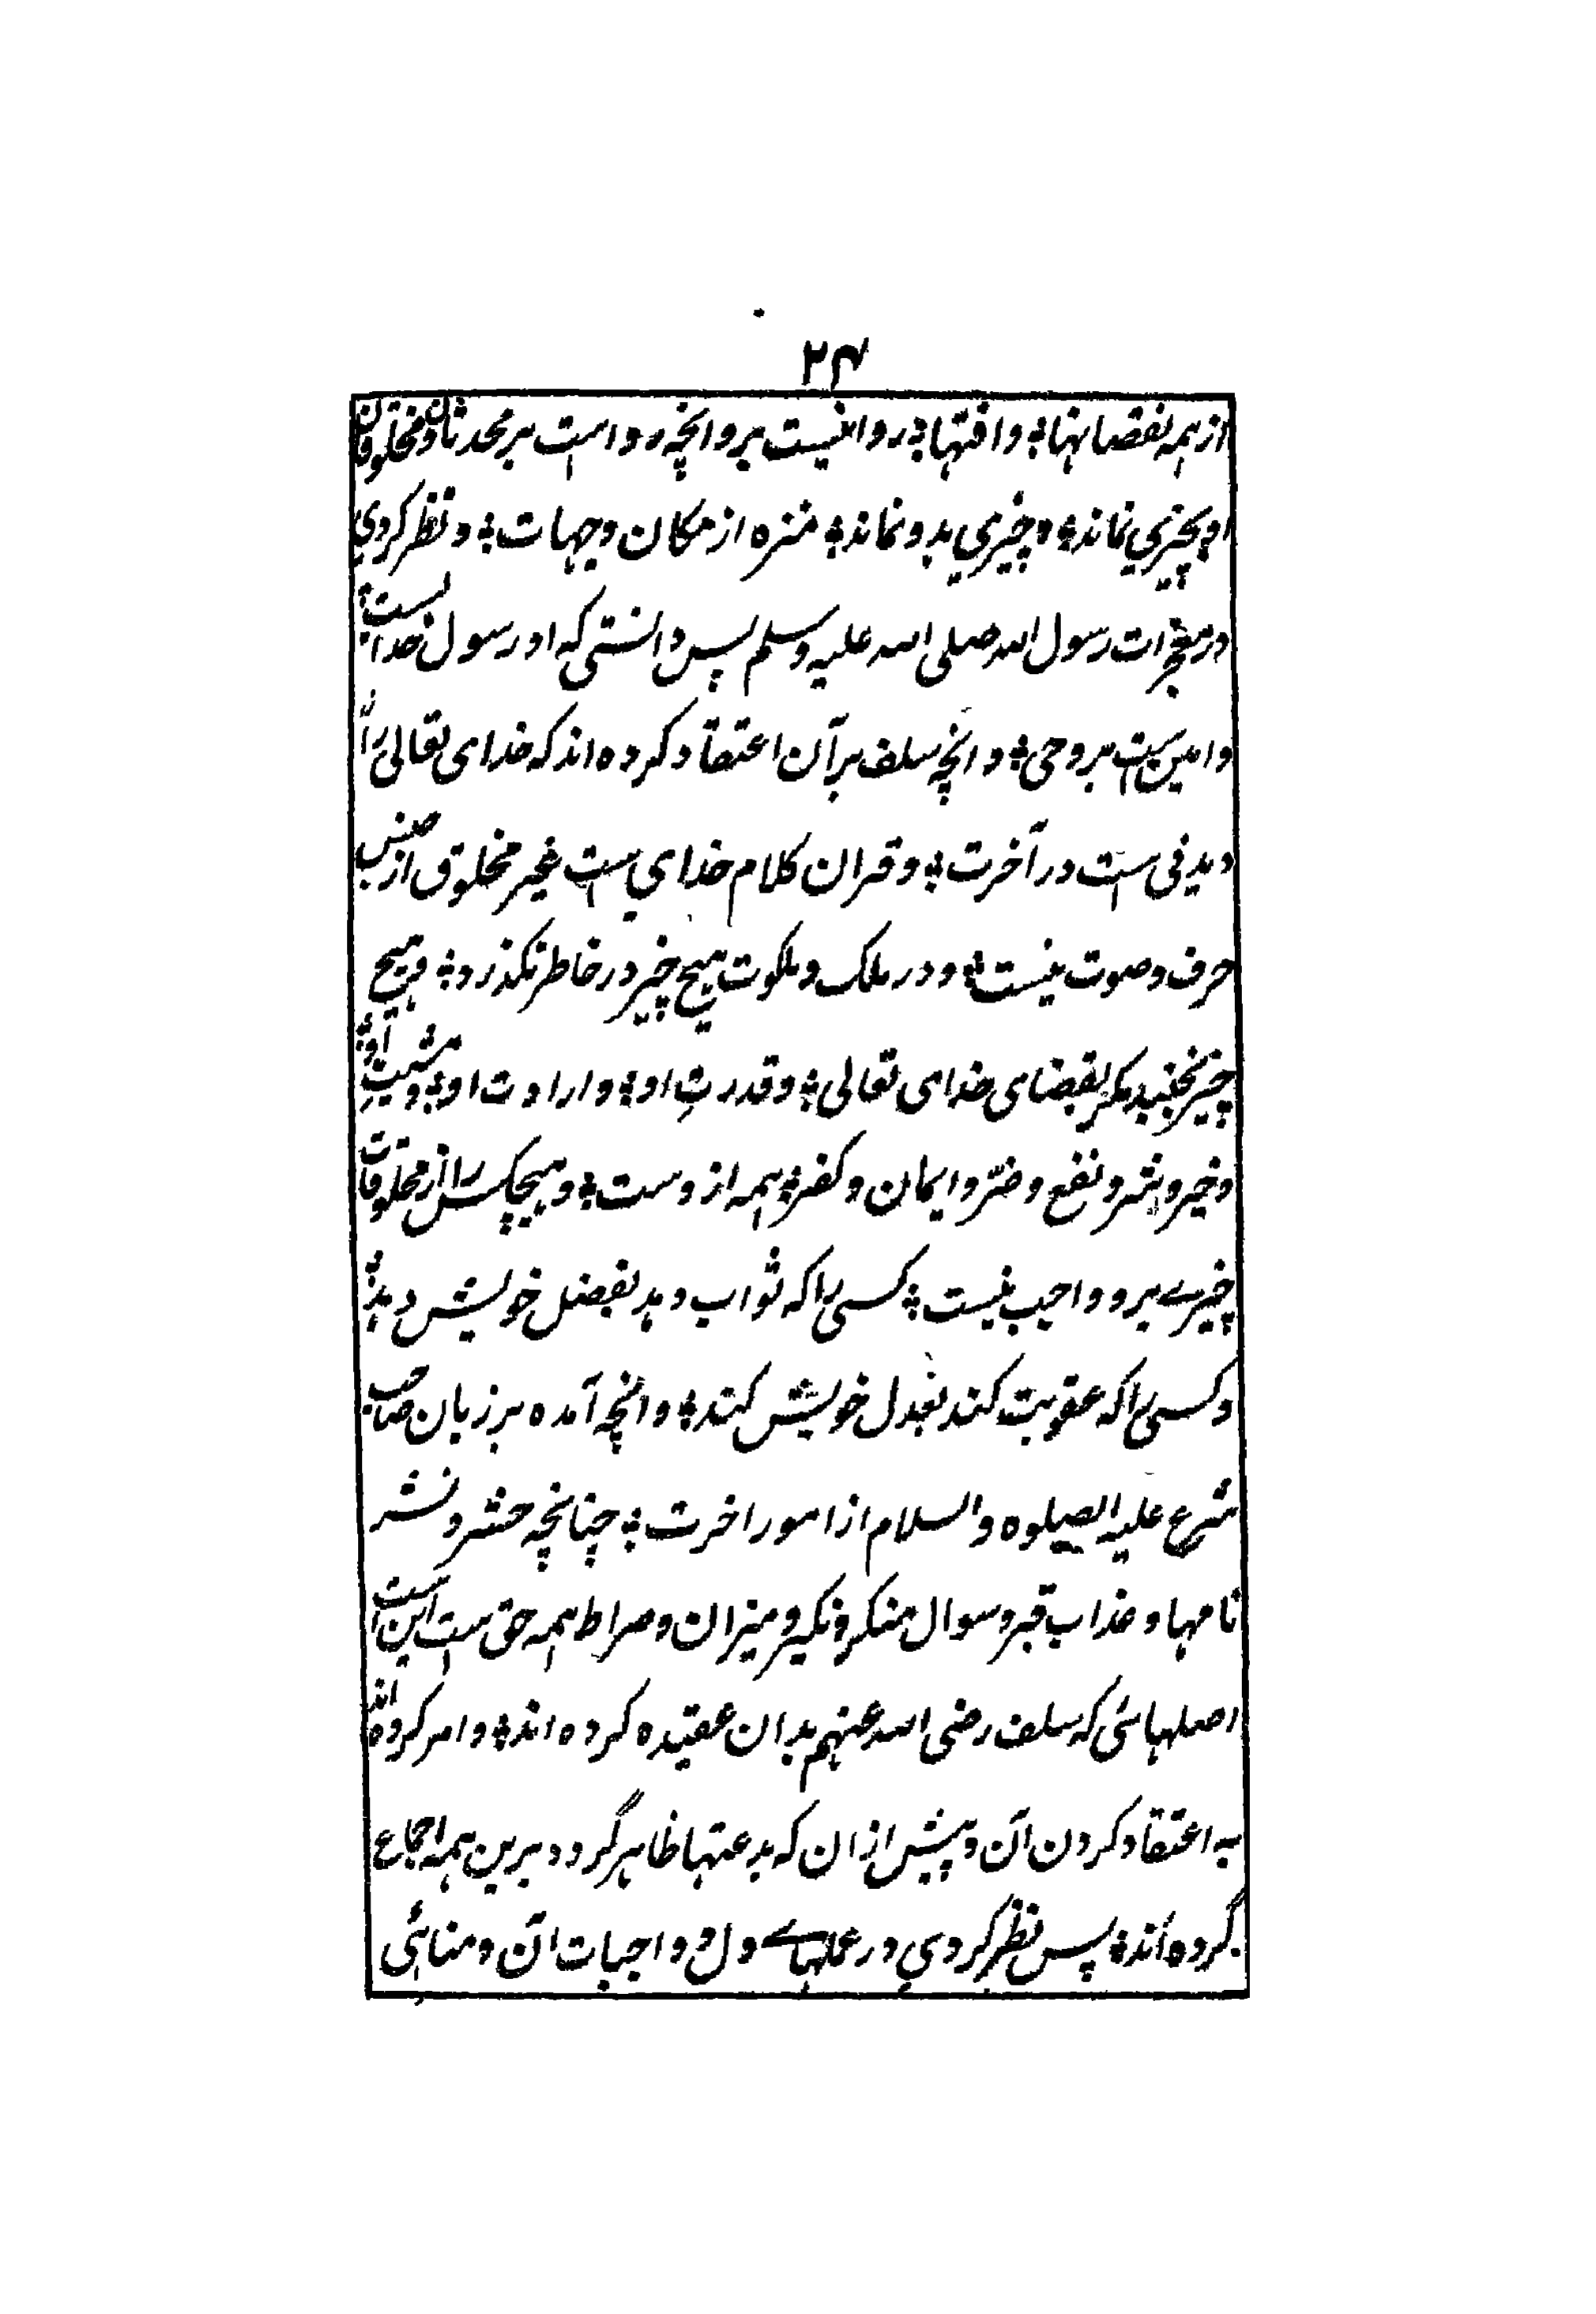 ۲۴
از همه نقصانها ؛ و افتها ؛ روا نیست برو انچه روا است بر محدثان و مخلوقان
او بچیزی نماند ؛ و چیزی بدو نماند ؛ منزه از مکان و جهات ؛ و نظر کردی
در معجزات رسول الله صلی الله علیه وسلم پس دانستی که او رسول خدا است ؛
و امین ست بر وحی ؛ و انچه سلف بر آن اعتقاد کرده اند که خدای تعالی را
دیدنی ست در آخرت ؛ و قران کلام خدای ست غیر مخلوق از جنس
حرف و صوت نیست ؛ و در ملک و ملکوت هیچ چیز در خاطر نگذرد ؛ و هیچ
چیز نجنبد مگر بقضای خدای تعالی ؛ و قدرتِ او ؛ و ارادت او ؛ و مشیتِ او ؛
و خیر و شر و نفع و ضرّ و ایمان و کفر ؛ همه از وست ؛ و هیچکس را از مخلوقات
چیزے برو واجب نیست ؛ کسی را که ثواب دهد بفضل خویش دهد ؛
و کسی را که عقوبت کند بعدل خویش کند ؛ و انچه آمده بر زبان صاحب
شرع علیه الصلوه والسلام از امور اخرت ؛ چنانچه حشر و نشر
نامها و عذاب قبر و سوال منکر و نکیر و میزان و صراط همه حق ست این است
اصلهائی که سلف رضی الله عنهم بدان عقیده کرده اند ؛ و امر کرده اند
به اعتقاد کردن آن و پیش ازان که بدعتها ظاهر گردد برین همه اجماع
کرده اند ؛ پس نظر کردی در عملهاے دل و واجبات آن و مناہئی